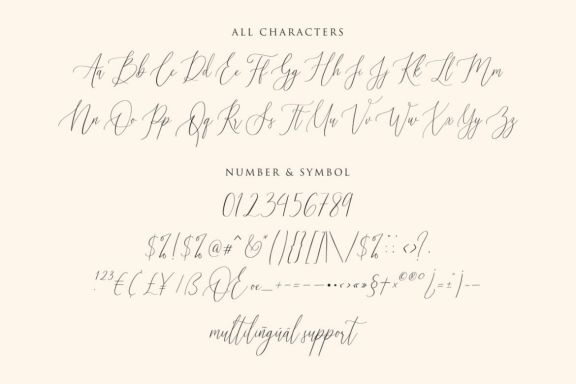 ALL CHARACTERS
Aa Bb Cc Dd Ee Ff Gg Hh Ii Jj Kk Ll Mm
Nn Oo Pp Qq Rr Ss Tt Uu Vv Ww Xx Yy Zz
NUMBER & SYMBOL
0123456789
$%!$%@#^&*(){}[]|\/$%:;<>?.
123€¢£¥/ßŒœ_+-=–—••‹›«»§†×©®°¡=±¦--
multilingual support